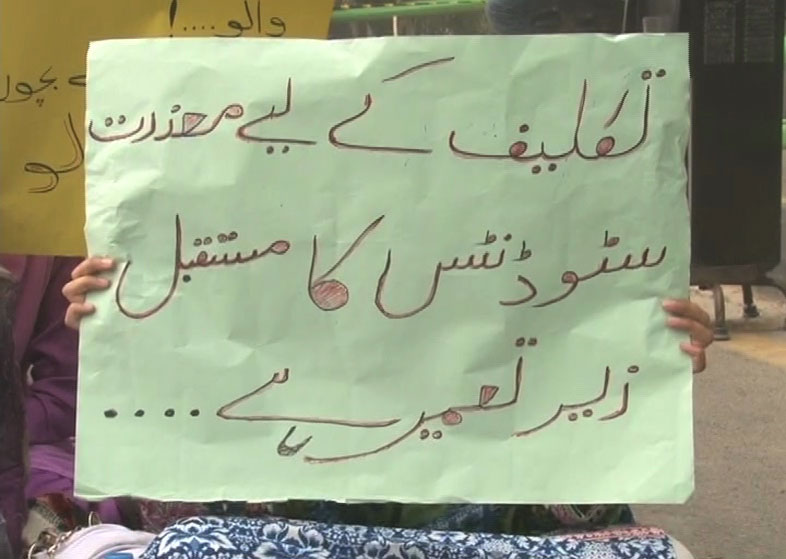 والو....!
بچوں
لو
تکلیف کے لیے معذرت
سٹوڈنٹس کا مستقبل
زیر تعمیر ہے....